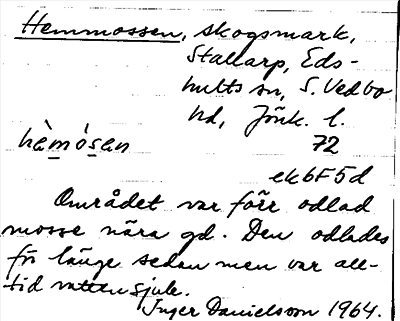 Hemmossen, skogsmark,
Stallarp, Eds-
hults sn, S. Vedbo
hd, Jönk. l.
hèmósen 72
ek 6F5d
Området var förr odlad
mosse nära gd. Den odlades
för länge sedan men var all-
tid vattensjuk.
Inger Danielsson 1964.